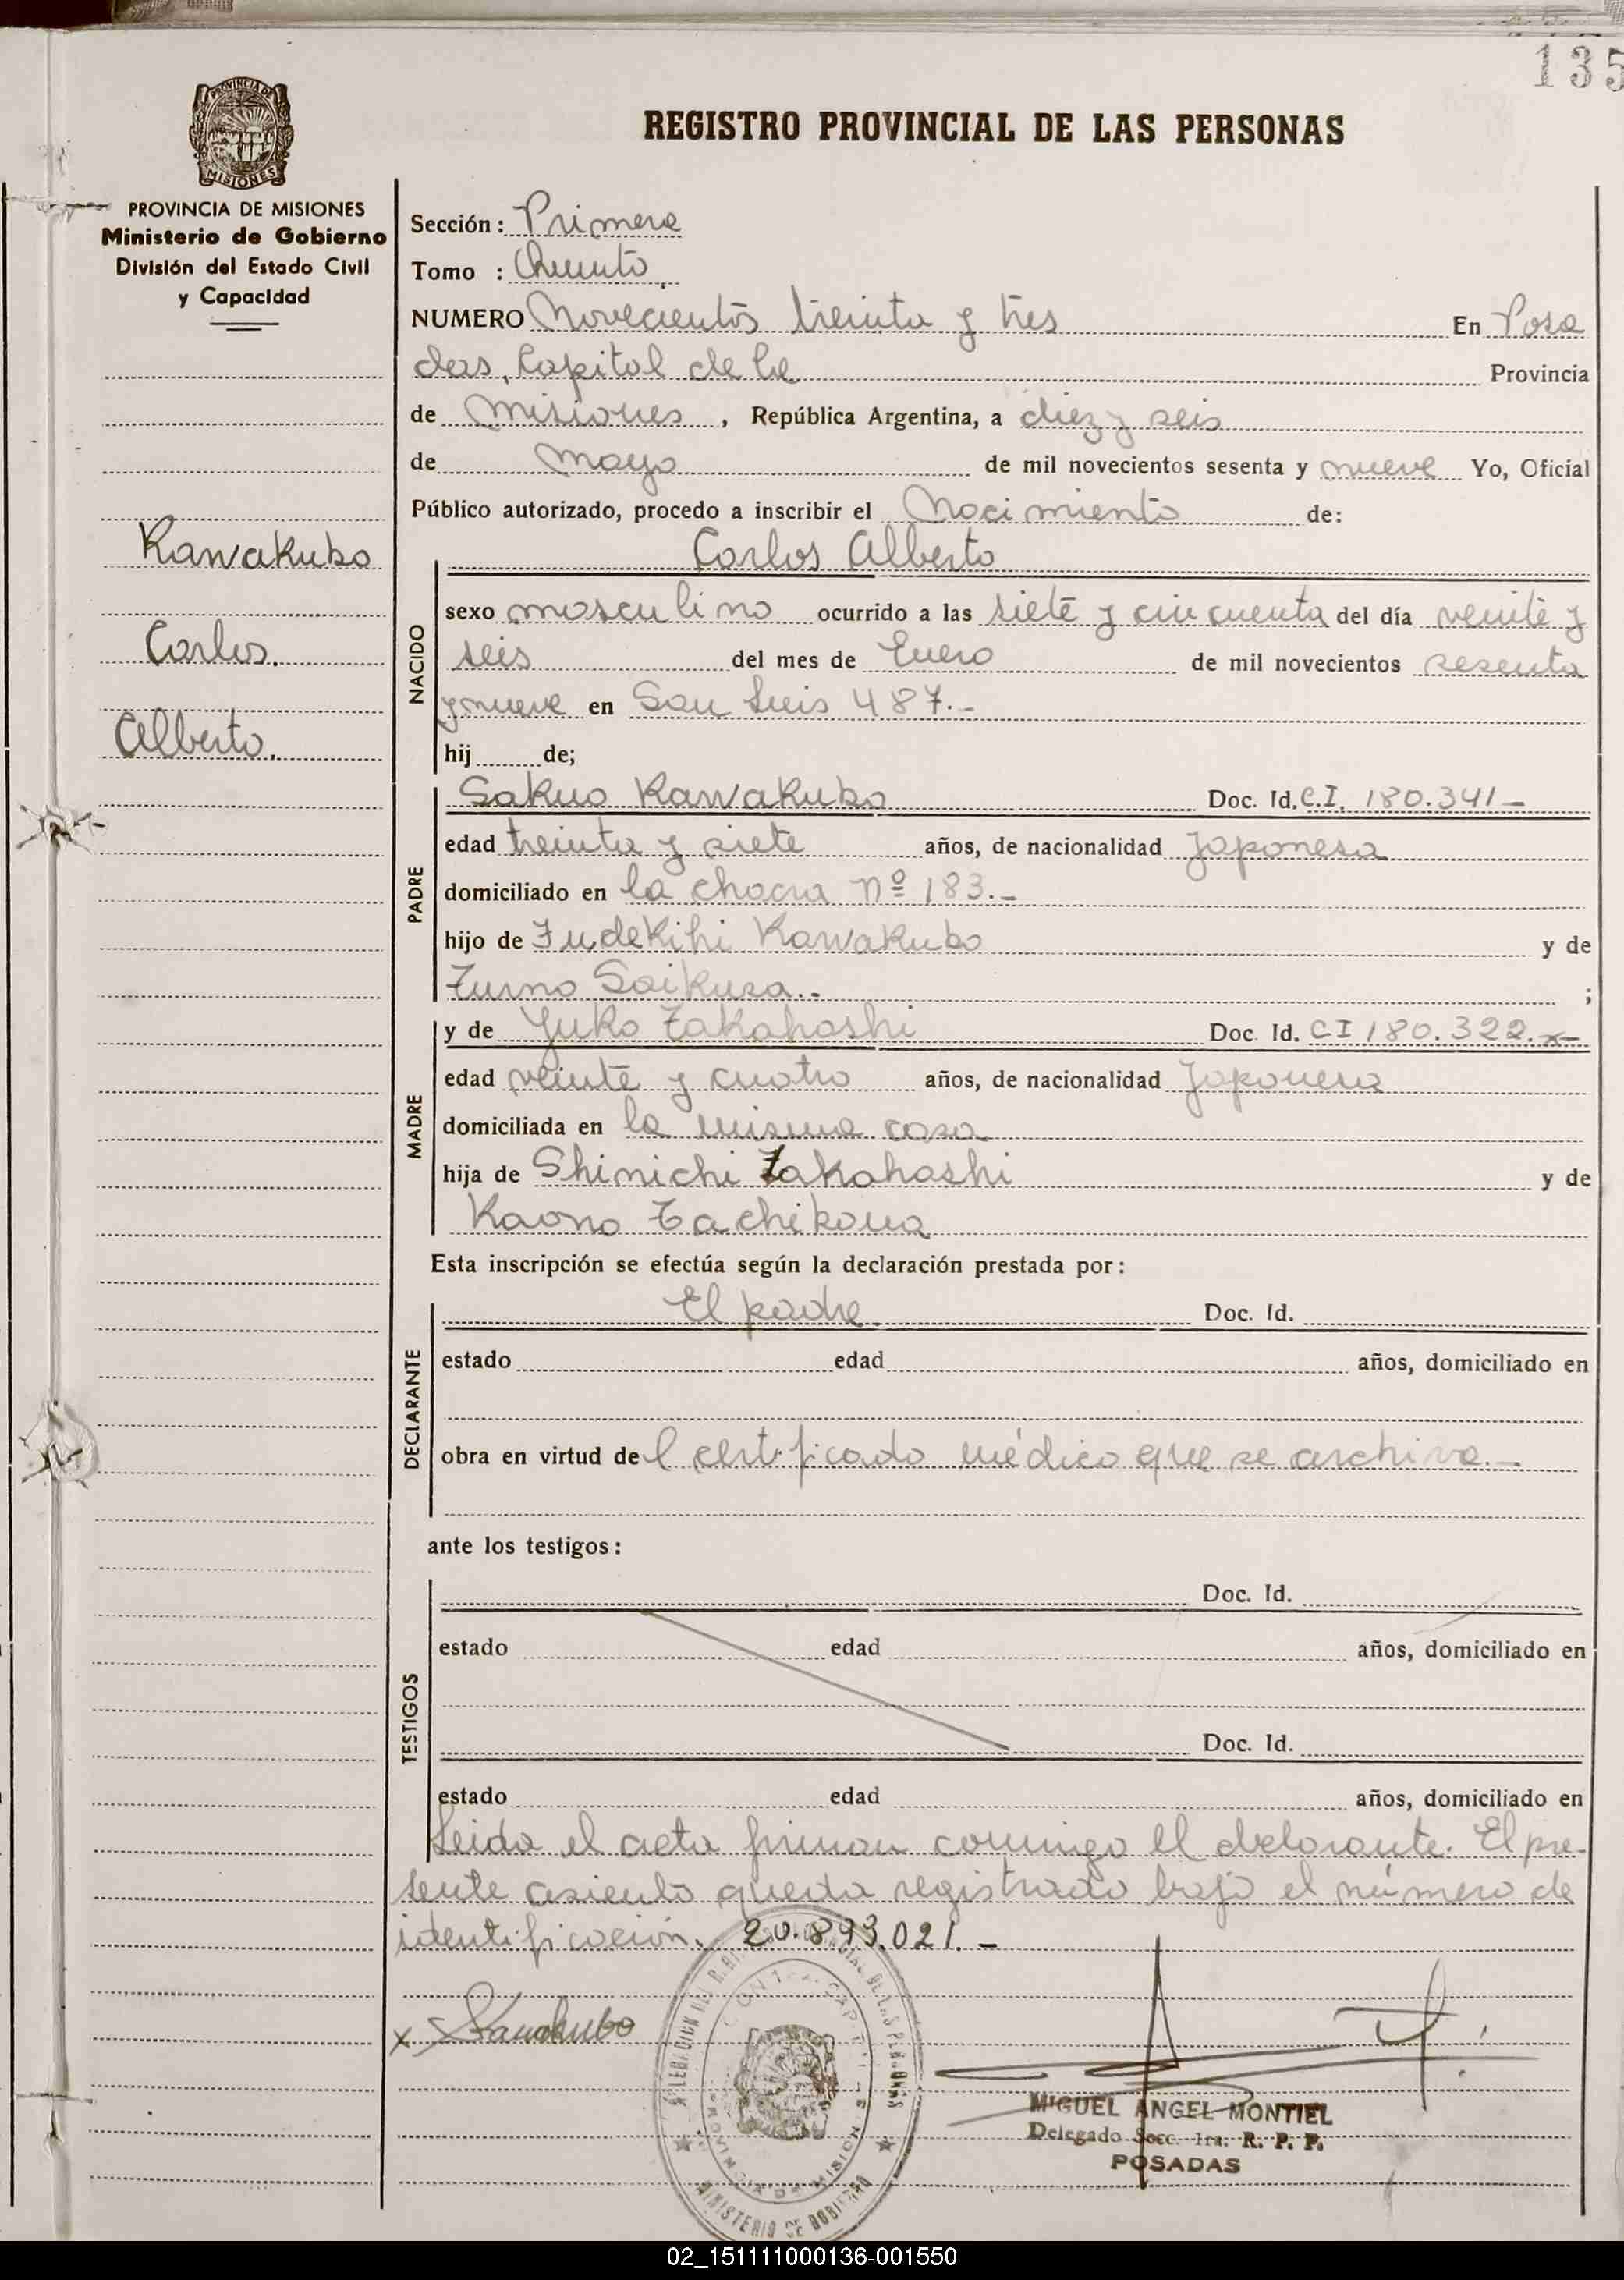 135
PROVINCIA DE
MISIONES
REGISTRO PROVINCIAL DE LAS PERSONAS
PROVINCIA DE MISIONES
Ministerio de Gobierno
División del Estado Civil
y Capacidad
Kawakubo
Carlos
Alberto.
Sección: Primera
Tomo : Quinto
NUMERO Novecientos treinta y tres En Posa
das, Capital de la Provincia
de Misiones, República Argentina, a diez y seis
de mayo de mil novecientos sesenta y nueve Yo, Oficial
Público autorizado, procedo a inscribir el Nacimiento de:
Carlos Alberto
NACIDO
sexo masculino ocurrido a las siete y cincuenta del día veinte y
seis del mes de Enero de mil novecientos sesenta
y nueve en San Luis 487.-
hij de;
PADRE
Sakuo Kawakubo Doc. Id. C.I. 180.341-
edad treinta y siete años, de nacionalidad Japonesa
domiciliado en la chacra nº 183.-
hijo de Fudekihi Kawakubo y de
Fumo Saikusa.- ;
MADRE
y de Yuko Takahashi Doc. Id. CI 180.322.-
edad veinte y cuatro años, de nacionalidad Japonesa
domiciliada en la misma casa
hija de Shinichi Takahashi y de
Kaono Tachikoua
Esta inscripción se efectúa según la declaración prestada por:
DECLARANTE
El padre. Doc. Id.
estado edad años, domiciliado en
obra en virtud del certificado médico que se archiva.-
ante los testigos:
TESTIGOS
Doc. Id.
estado edad años, domiciliado en
Doc. Id.
estado edad años, domiciliado en
Leida el acta firman conmigo el delarante. El pre-
sente asiento queda registrado bajo el número de
identificación. 20.893.021.-
x Kawakubo
MIGUEL ANGEL MONTIEL
Delegado Secc. 1ra. R. P. P.
POSADAS
PROVINCIA DE MISIONES
MINISTERIO DE GOBIERNO
02_151111000136-001550